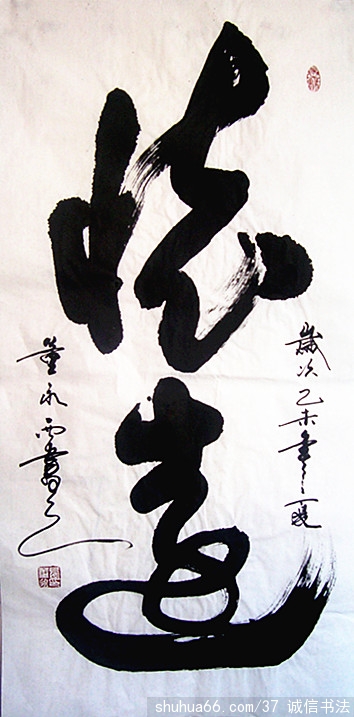 懷遠
歲次乙未年之
董永書
shuhua66.com/37 诚信书法